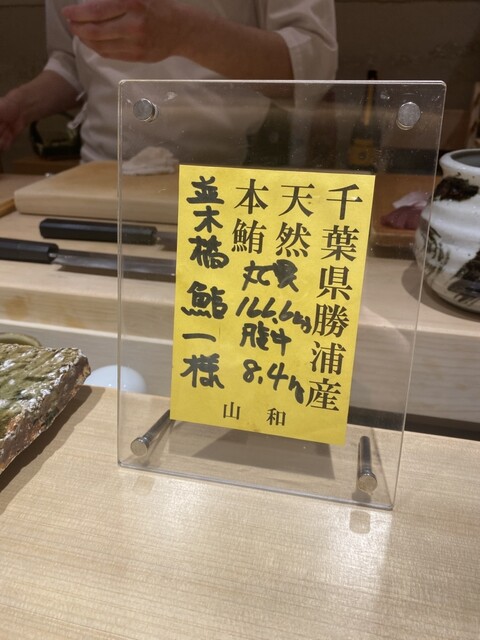 千葉県勝浦産
天然
本鮪
166.6kg
腹中
8.4kg
並木橋 鮨一様
山 和